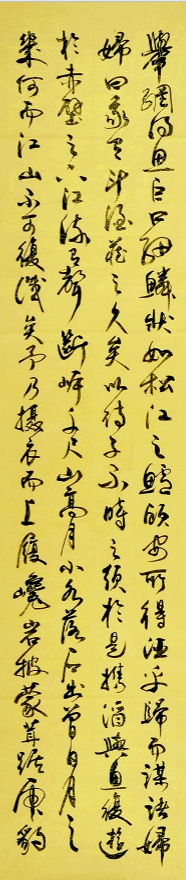 舉網得魚巨口細鱗狀如松江之鱸顧安所得酒乎歸而謀諸婦
婦曰我有斗酒藏之久矣以待子不時之須於是攜酒與魚復遊
於赤壁之下江流有聲斷岸千尺山高月小水落石出曾日月之
幾何而江山不可復識矣予乃攝衣而上履巉岩披蒙茸踞虎豹